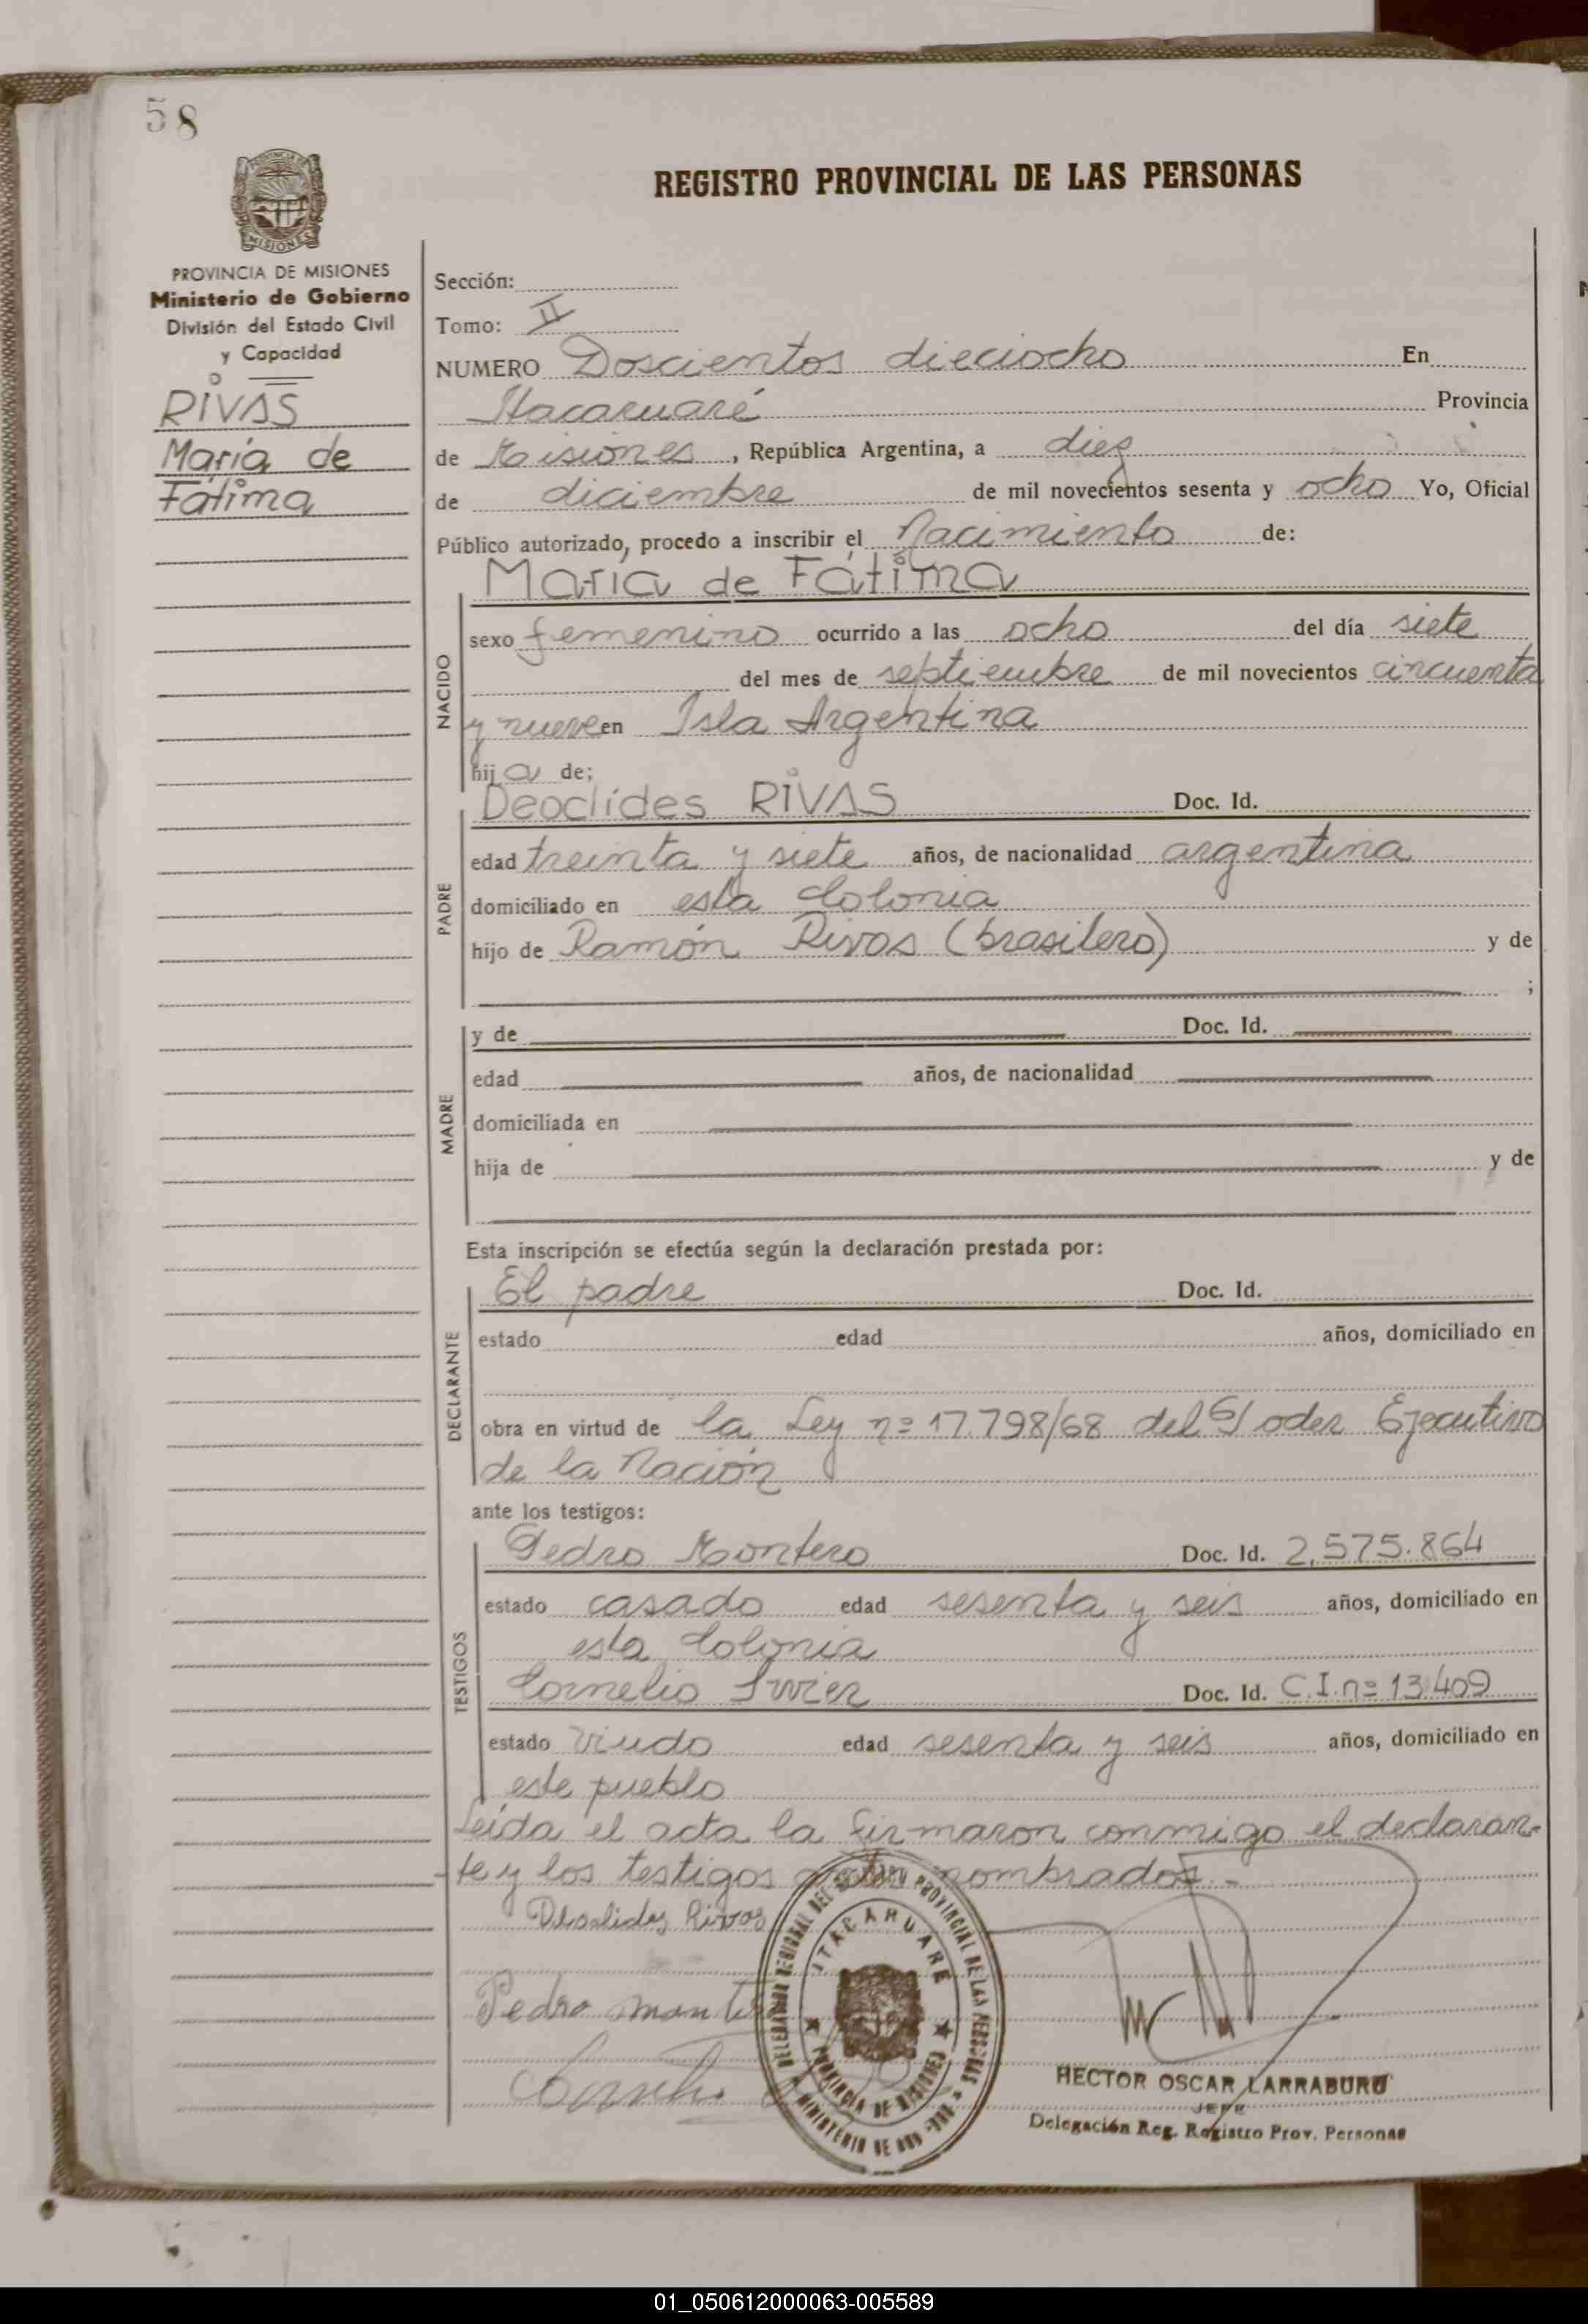 58
REGISTRO PROVINCIAL DE LAS PERSONAS
MISIONES
PROVINCIA DE MISIONES
Ministerio de Gobierno
División del Estado Civil
y Capacidad
RIVAS
María de
Fátima
Sección:
Tomo: II
NUMERO Doscientos dieciocho En
Itacaruaré Provincia
de Misiones, República Argentina, a diez
de diciembre de mil novecientos sesenta y ocho Yo, Oficial
Público autorizado, procedo a inscribir el Nacimiento de:
María de Fátima
NACIDO
sexo femenino ocurrido a las ocho del día siete
del mes de septiembre de mil novecientos cincuenta
y nueve en Isla Argentina
hija de;
PADRE
Deoclides RIVAS Doc. Id.
edad treinta y siete años, de nacionalidad argentina
domiciliado en esta Colonia
hijo de Ramón Rivas (brasilero) y de
;
MADRE
y de Doc. Id.
edad años, de nacionalidad
domiciliada en
hija de y de
Esta inscripción se efectúa según la declaración prestada por:
DECLARANTE
El padre Doc. Id.
estado edad años, domiciliado en
obra en virtud de la Ley nº 17.798/68 del Poder Ejecutivo
de la Nación
ante los testigos:
TESTIGOS
Pedro Montero Doc. Id. 2.575.864
estado casado edad sesenta y seis años, domiciliado en
esta Colonia
Cornelio Doc. Id. C.I. nº 13.409
estado viudo edad sesenta y seis años, domiciliado en
este pueblo
Leída el acta la firmaron conmigo el declaran-
-te y los testigos nombrados.-
Rivas
Pedro
DELEGACION REGIONAL DEL REGISTRO PROVINCIAL DE LAS PERSONAS
ITACARUARE
PROVINCIA DE MISIONES
MINISTERIO DE GOB.
HECTOR OSCAR LARRABURU
JEFE
Delegación Reg. Registro Prov. Personas
01_050612000063-005589